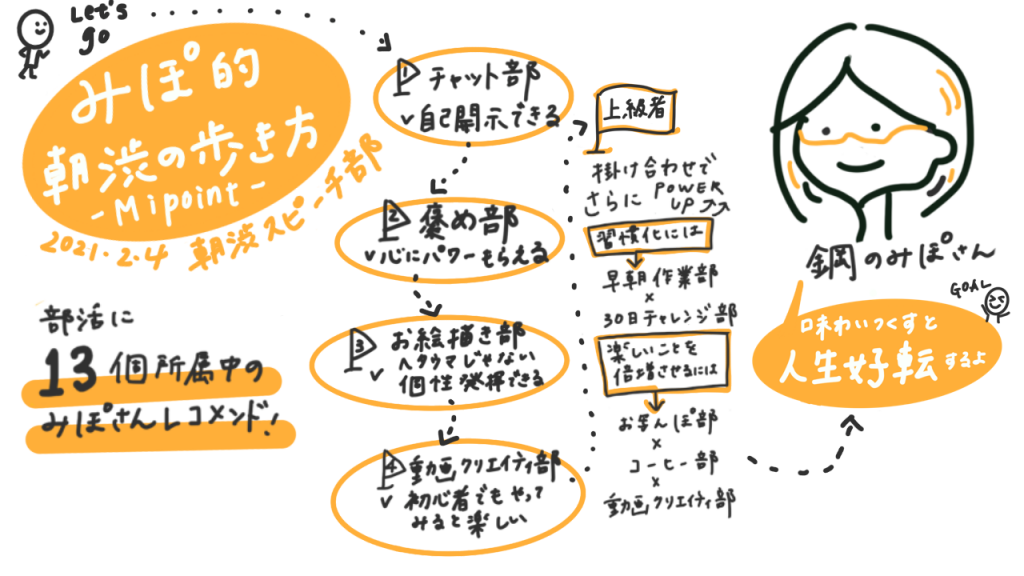 Let's
go
みぽ的
朝渋の歩き方
- Mipoint -
2021.2.4 朝渋スピーチ部
部活に
13個所属中の
みぽさんレコメンド!
1 チャット部
✓ 自己開示できる
2 褒め部
✓ 心にパワーもらえる
3 お絵描き部
ヘタウマじゃない
✓ 個性発揮できる
4 動画クリエイティ部
✓ 初心者でもやって
みると楽しい
上級者
掛け合わせで
さらに POWER
UP↗↗
習慣化には
早朝作業部
×
30日チャレンジ部
楽しいことを
倍増させるには
お さんぽ部
×
コーヒー部
×
動画クリエイティ部
鋼のみぽさん
GOAL
味わいつくすと
人生好転するよ